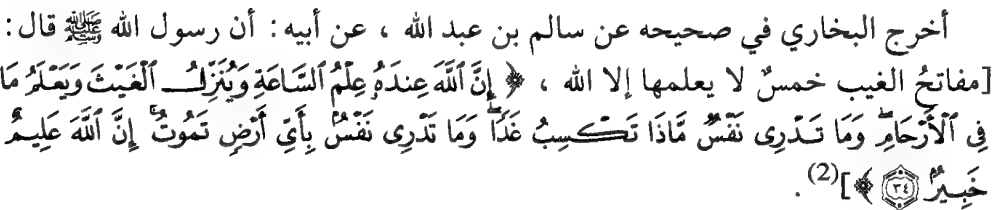 أخرج البخاري في صحيحه عن سالم بن عبد الله ، عن أبيه : أن رسول الله ﷺ قال :
[مفاتحُ الغيب خمسٌ لا يعلمها إلا الله ، ﴿ إِنَّ ٱللَّهَ عِندَهُۥ عِلْمُ ٱلسَّاعَةِ وَيُنَزِّلُ ٱلْغَيْثَ وَيَعْلَمُ مَا
فِى ٱلْأَرْحَامِ ۖ وَمَا تَدْرِى نَفْسٌ مَّاذَا تَكْسِبُ غَدًا ۖ وَمَا تَدْرِى نَفْسٌۢ بِأَىِّ أَرْضٍ تَمُوتُ ۚ إِنَّ ٱللَّهَ عَلِيمٌ
خَبِيرٌۢ ٣٤ ﴾](2) .